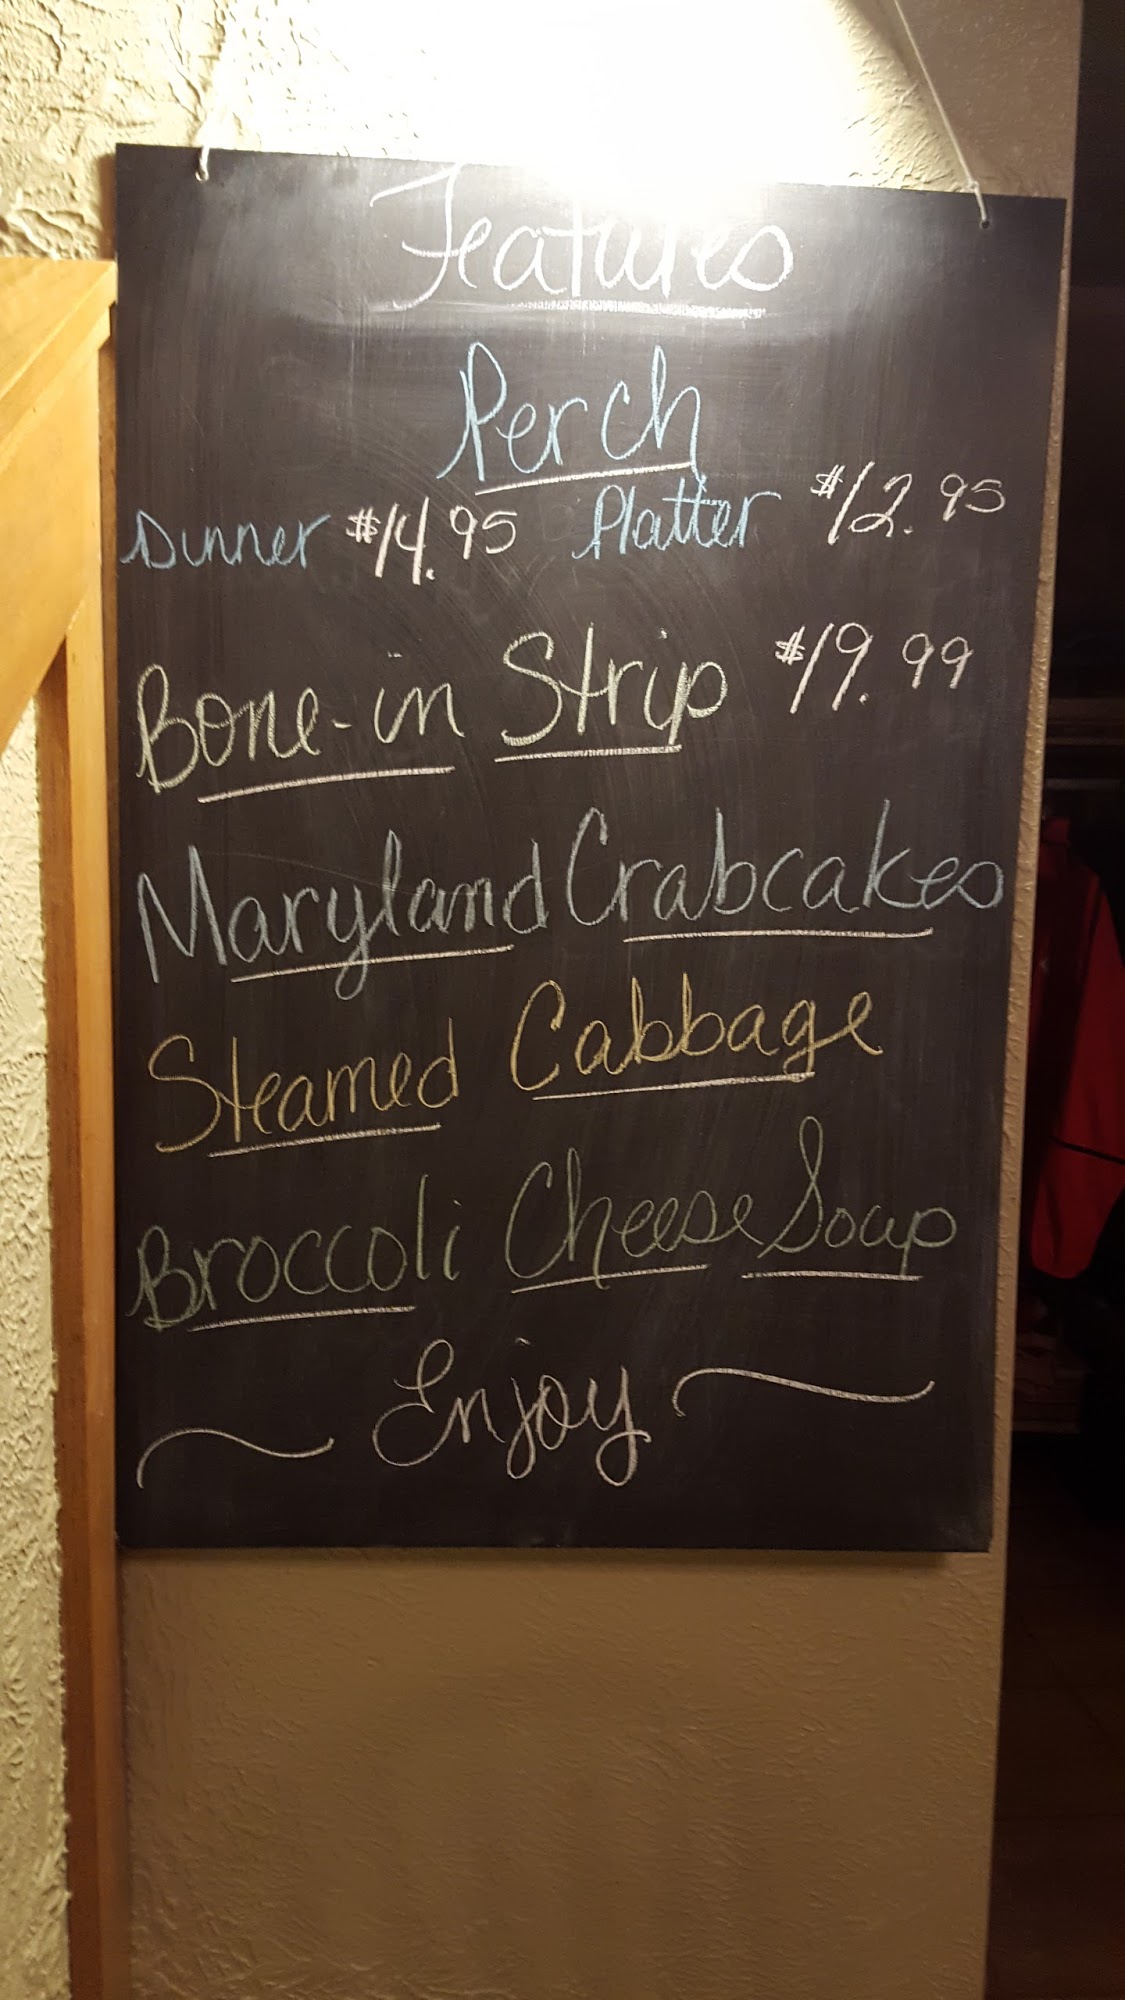 Features
Perch
Dinner $14.95 Platter $12.95
Bone-in Strip $19.99
Maryland Crabcakes
Steamed Cabbage
Broccoli Cheese Soup
~ Enjoy ~